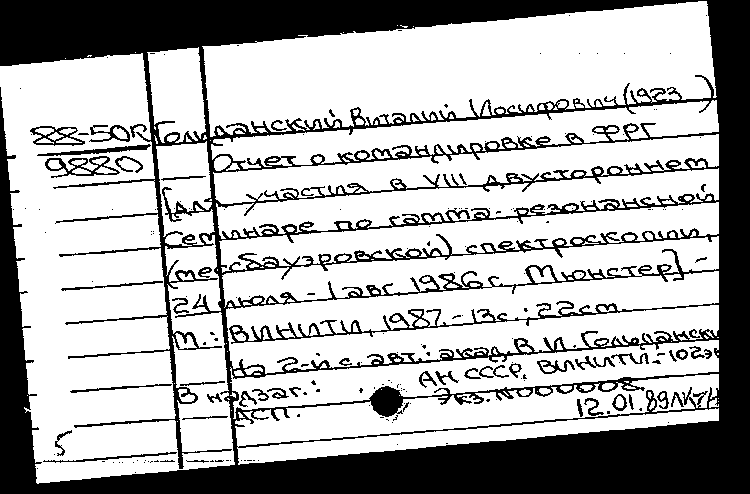 88-50R Гольданский, Виталий Иосифович (1923 )
9880 Отчет о командировке в ФРГ
[для участия в VIII двустороннем
семинаре по гамма-резонансной
(мессбауэровской) спектроскопии,
24 июля - 1 авг. 1986 г., Мюнстер]. -
М.: ВИНИТИ, 1987. - 13 с.; 22 см.
На 2-й с. авт.: акад. В. И. Гольдански
В надзаг.: АН СССР, ВИНИТИ. - 102 эк
ДСП. Экз. N000008.
5 12.01.89